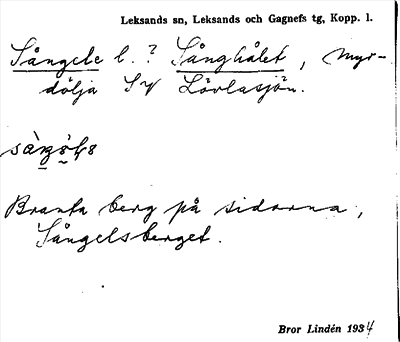 Leksands sn, Leksands och Gagnefs tg, Kopp. l.
Sångele l. ? Sånghålet, myr-
dölja SV Lövlasjön.
Branta berg på sidorna,
Sångelsberget.
Bror Lindén 1934